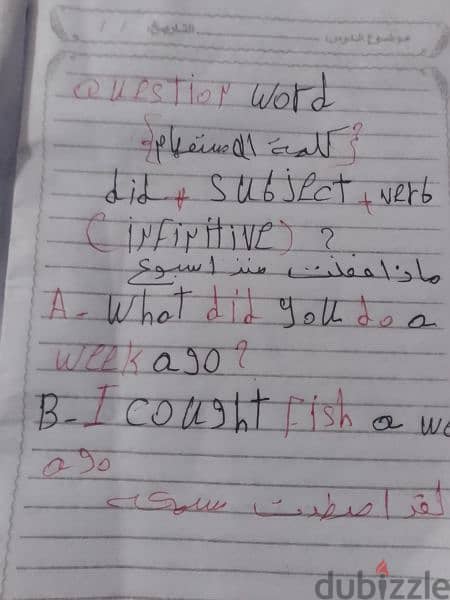 موضوع الدرس التاريخ / /
Question word
{كلمة الاستفهام؟}
did + subject + verb
(infinitive) ?
ماذا فعلت منذ اسبوع
A- What did you do a
week ago?
B- I cought fish a we
ago
لقد اصطدت سمكه
dubizzle